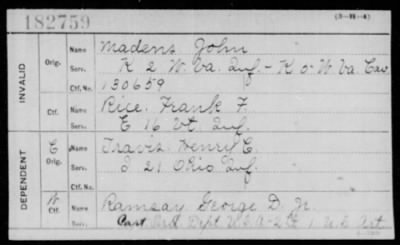 182759
(3-H-4)
INVALID
Orig. Name Madens John
Serv. K 2 W. Va. Inf. - K 5 W. Va. Cav
Ctf. No. 130659
Ctf. Name Rice, Frank F.
Serv. E 16 Vt. Inf.
DEPENDENT
Orig. Name Travis Henry C.
Serv. I 21 Ohio Inf.
Ctf. No.
W
Ctf. Name Ramsay George D. Jr.
Serv. Capt Ord Dept U.S.A. 2 Lt 1 U.S. Art